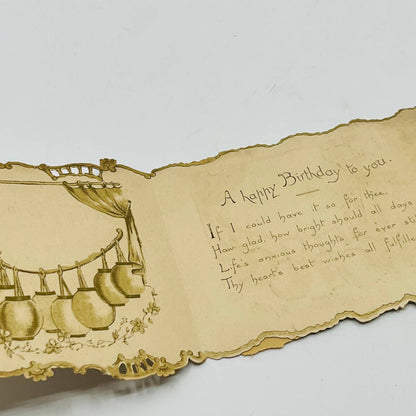 A happy Birthday to you.
If I could have it so for thee.
How glad, how bright should all days
Life's anxious thoughts for ever
Thy heart's best wishes all